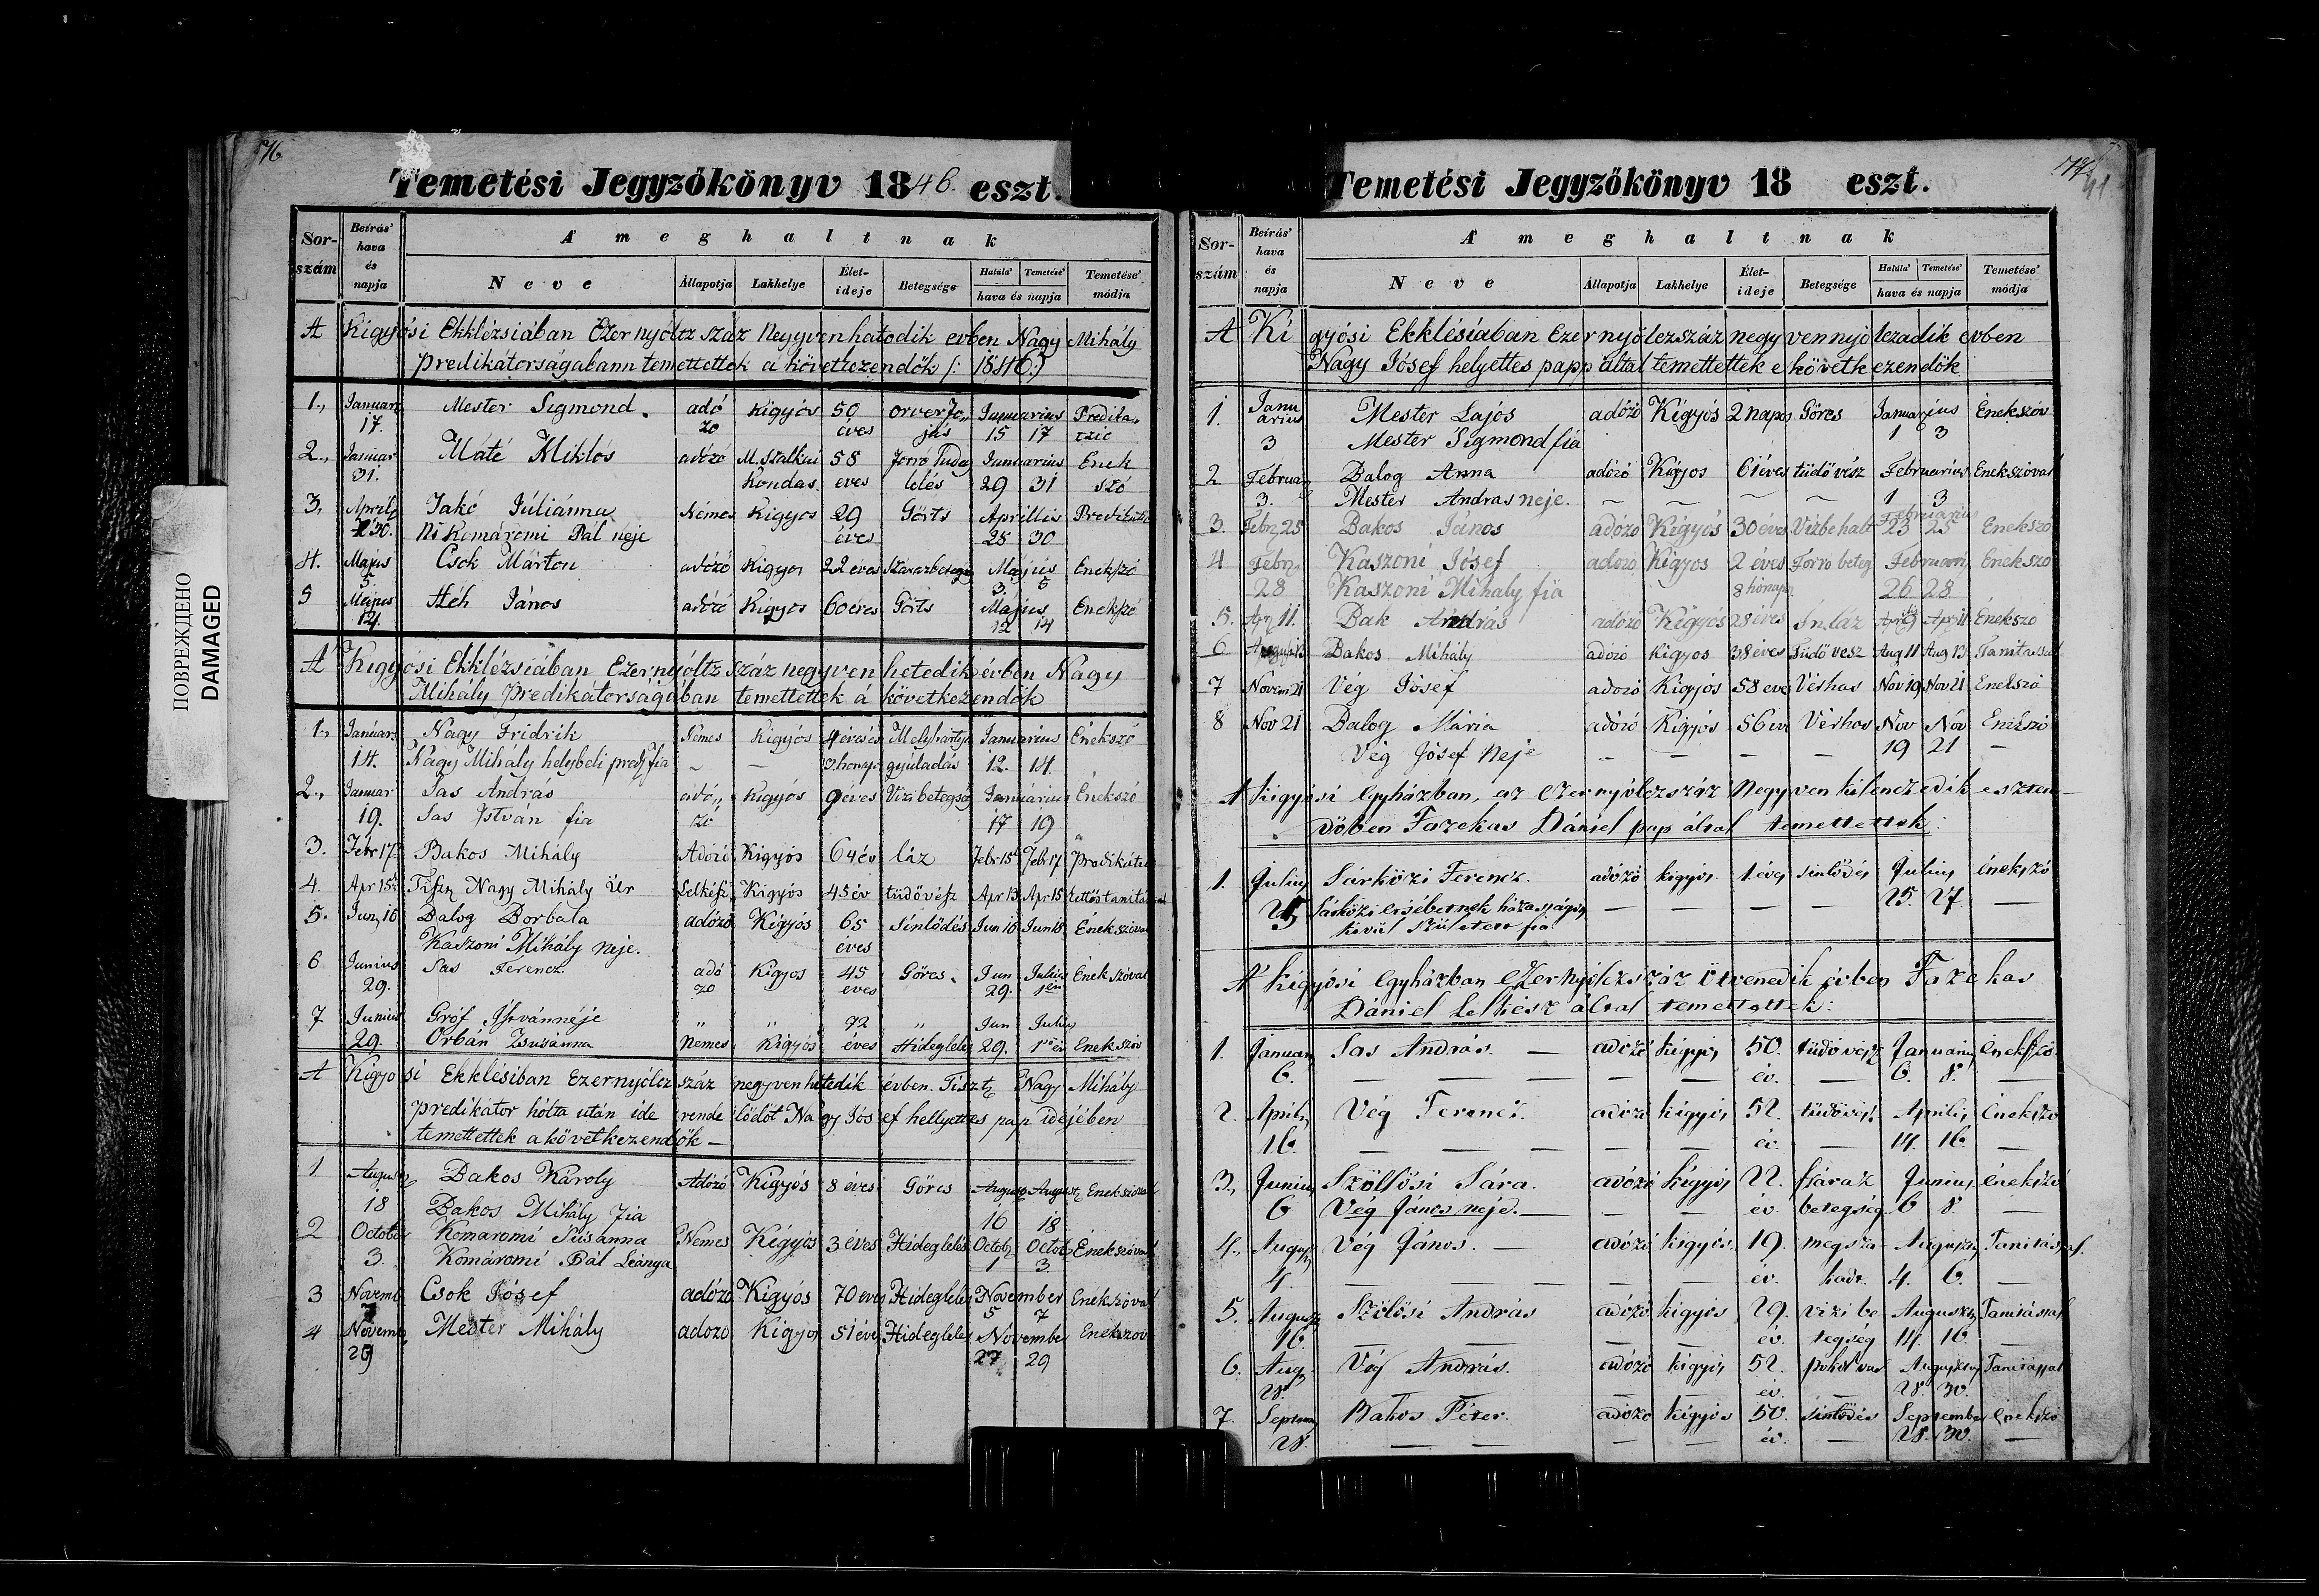 76
Temetési Jegyzőkönyv 1846. eszt.
Sor-szám
Beírás' hava és napja
A' meghaltnak
Neve
Állapotja
Lakhelye
Élet-ideje
Betegsége
Halála' Temetése'
hava és napja
Temetése' módja
A Kigyósi Ekklézsiában Ezernyóltz száz Negyvenhatodik evben Nagy Mihály
Predikátorságabann temettettek a következendők /: 1846:/
1., Januar Mester Sigmond. adó Kigyós 50 Januarius Predika
17. zo éves 15 17 czio
2., Januar Máté Miklós adózó M. Szalkai 58 Januarius Enek
31. Kondas. eves lelés 29 31 szó
3, Jakó Júliánna Nemes Kigyos 29 Görts Aprillis
30. Komáromi Pál néje éves 28 30
4. Majus Csok Márton adózó Kigyos 22 eves Május Enekszó
5. 3. 5
5 Majus Héh János adózó Kigyos 60 éves Görts Május Enekszó
14. 12 14
A Kigyósi Ekklézsiában Ezernyóltz száz negyven hetedik évben Nagy
Mihály Predikátorságában temettettek á következendők
1, Január Nagy Fridrik Nemes Kigyós 4 éves és Januarius Énekszó
14. Nagy Mihály helybeli fia gyúladás 12. 14.
2., Januar Sas András adó Kigyós 9 éves Vizi betegség Január Énekszó
19. Sas István fia zó 17 19
3. Febr 17. Bakos Mihály Adózó Kigyós 64 év láz Febr 15 Febr 17
4. Apr 15. Nagy Mihály Úr Lelkész Kigyós 45 év tüdővész Apr 13 Apr 15
5. Jun 18 Balog Borbala adózó Kigyós 65 Sinlődés Jun 16 Jun 18 Énekszóval
Kaszoni Mihály neje. éves
6 Junius Sas Ferencz adó Kigyos 45 Görcs. Jun Julius Énekszóval
29. zo éves 29.
7 Junius Gróf Istvánnéje " " 72 " Jun Julius
29. Orbán Zsuzsanna Nemes Kigyós éves Hideglelés 29. Enekszóv
A Kigyosi Ekklésiban Ezernyólcz száz negyvenhetedik évben. Tiszt Nagy Mihály
predikátor hólta után ide rendelődöt Nagy Jósef hellyettes pap idejében
temettettek a következendők —
1 August Bakos Károly Adózó Kigyós 8 éves Görcs August August Enekszóval
18 Bakos Mihály fia 16 18
2 October Komaromi Susanna Nemes Kigyós 3 éves Hideglelés Octob Octob Énekszóval
3. Komáromi Pál Leánya 1 3.
3 Novemb Csok Jósef adózó Kigyós 70 eves Hideglelés November Enekszóval
7 5 7
4 Novemb Mester Mihály adozo Kigyos 51 éve Hideglelés November Enekszov
29 27 29
ПОВРЕЖДЕНО
DAMAGED
41
Temetési Jegyzőkönyv 18 eszt.
Sor-szám
Beírás' hava és napja
A' meghaltnak
Neve
Állapotja
Lakhelye
Élet-ideje
Betegsége
Halála' Temetése'
hava és napja
Temetése' módja
A Kigyósi Ekklésíaban Ezernyólczszáz negyvennyólczadik évben
Nagy Jósef helyettes papp által temettettek e következendők
1. Januarius Mester Lajos adózó Kigyós 2 napos Görcs Januarius Énekszóv
3 Mester Sigmond fia 1 3
2. Februar Balog Anna adózó Kigyos 61 éves tüdő vész Februarius Enekszóval
3. Mester Andras neje. 1 3
3. Febr 25 Bakos János adózo Kigyós 30 éves Vizbe halt Februarius 23 25 Enekszo
4 Febr Kaszoni Jósef adozo Kigyos 2 éves Forro beteg Februari Énekszo
28 Kaszoni Mihaly fia 8 hónap 26 28
5. Apr 11. Bak András adózó Kigyós 28 éves láz Apr 9 Apr 11 Énekszo
6 August 13 Bakos Mihály adozó Kigyos 38 éves Tüdő vesz Aug 11 Aug 13
7 Novem 21 Vég Jósef adozó Kigyós 58 eve Vérhas Nov 19 Nov 21 Enekszó
8 Nov 21 Balog Mária adózó Kigyós 56 év Vérhas Nov Nov Enekszó
Vég Jósef Neje 19 21
A Kigyósi Egyházban, az Ezernyólczszáz Negyven kilenczedik eszten-
dőben Fazekas Dániel pap által temettettek:
1. Julius Sárközi Ferencz. adózó kigyós. 1. éves sinlődés Julius énekszó
25 Sárközi Ersébetnek házasságon 25. 27.
kivül született fia
A Kigyósi Egyházban Ezernyólczszáz ötvenedik évben Fazekas
Dániel Lelkész által temettettek:
1. Januar Sas András. — adózó kigyós 50. tüdővész Januarius énekszó.
6. év. 6. 8.
2. April Vég Ferencz. adózó kigyós 52. tüdővész Aprilis énekszó
16. év. 14. 16.
3., Junius Szöllősi Sára. adózó kigyós 22. száraz Junius énekszó
6 Vég János neje. — év. betegség 6 8.
4., August Vég János. — adózó kigyós. 19. megsza- August Tanitással.
4. év. kadt. 4. 6.
5. August Szőlősi András adózó kigyós 29. vizi be August Tanitással
16. év. tegség 14. 16.
6. Aug Vég András. adózó kigyós 52. August Tanitással
28. év. 28. 30.
7. Septem Bakos Péter. adózo kigyós 50. sinlődés September énekszó
28. év. 28. 30.